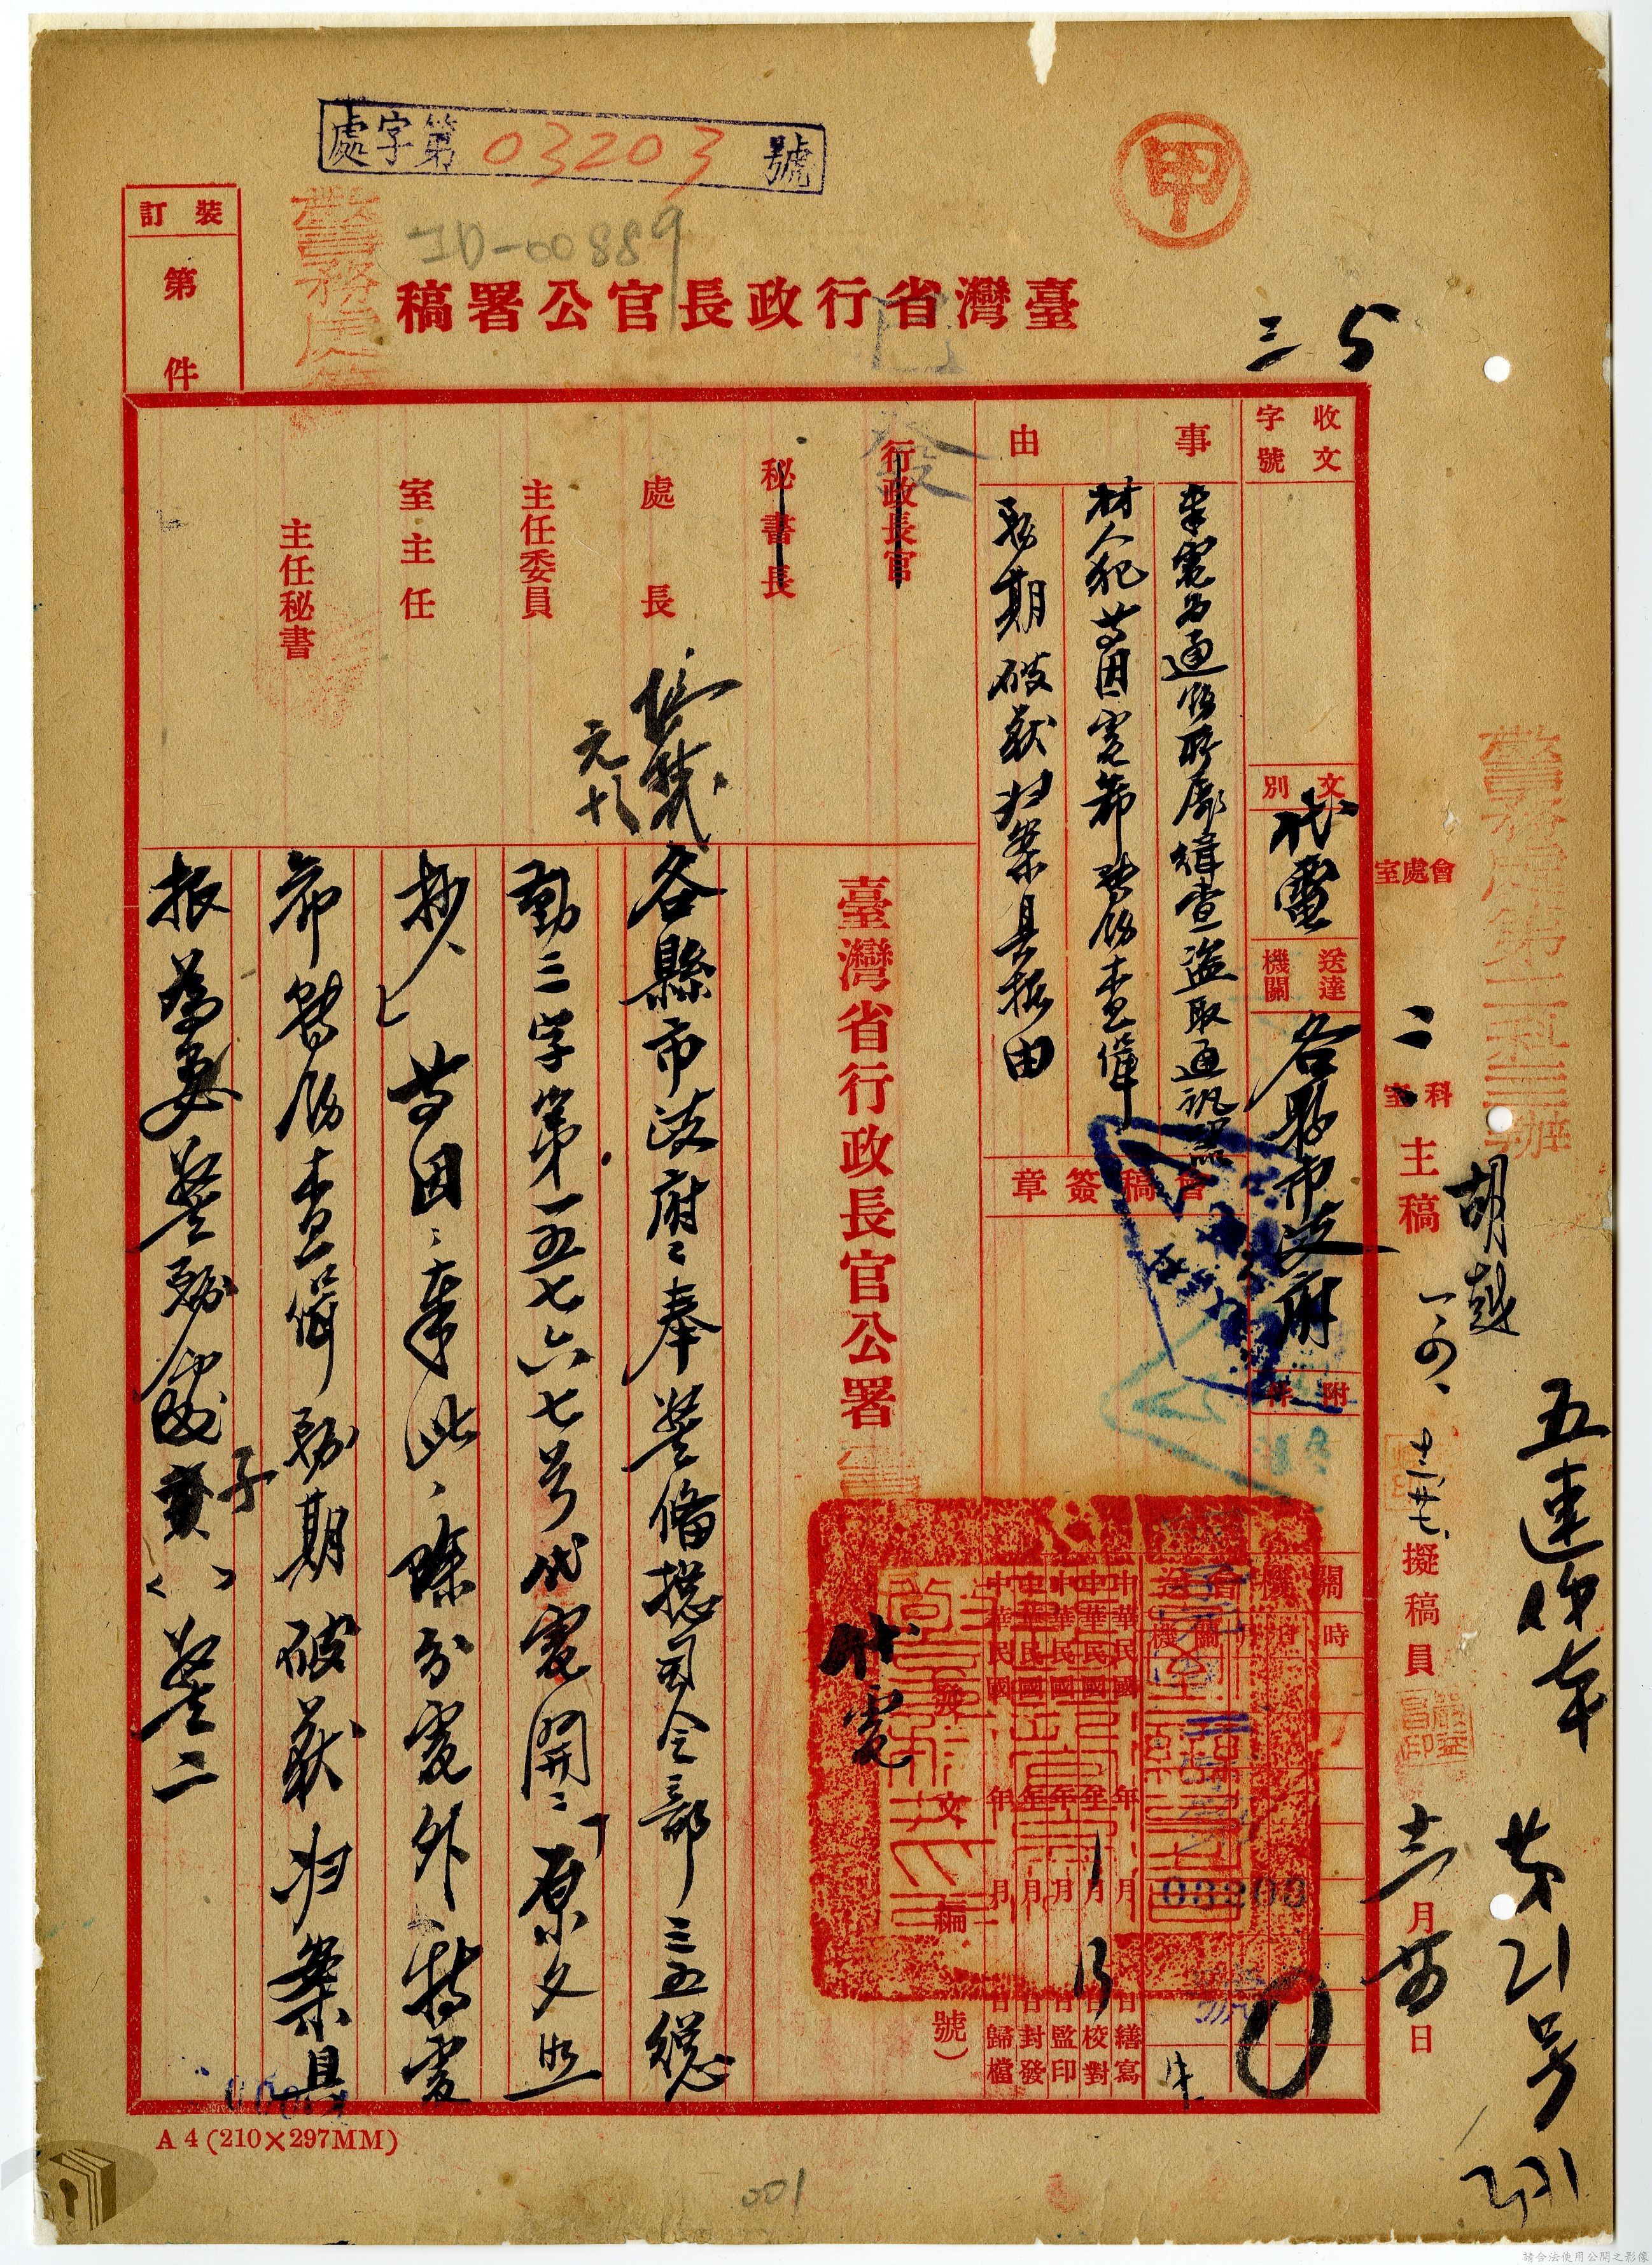 處字第 03203 號
甲
裝訂
第 件
警務處
ID-00889
臺灣省行政長官公署稿
三 5
已發
收文
字號
文別
代電
送達
機關
各縣市政府
附件
事由
奉電為通飭所屬緝查盜取通訊器
材人犯等因電希轉飭查緝
務期破獲归案具报由
會稿簽章
行政長官
秘書長
處長
主任委員
室主任
主任秘書
元
會處室
二
科室
主稿
胡越
擬稿員
十二月 日
警務處第二科三辦
五連
21号
關機
時
中華民國 年 月 日繕寫
中華民國 年 1月 13日校對
中華民國 年 月 日監印
中華民國 年 月 日封發
中華民國 年 月 日歸檔
03203
號
文 編 號)
臺灣省行政長官公署
代電
各縣市政府：奉警備總司令部三五總
勤三字第一五七六七号代電開：「原文照
抄」等因：奉此、除分電外特電
希督飭查緝務期破获归案具
报為要警務處 子( )警二
A4(210×297MM)
001
請合法使用公開之影像